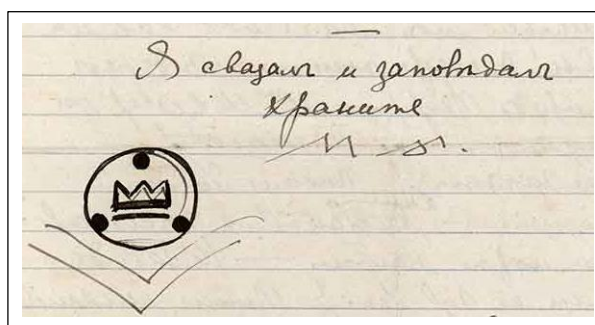 Я сказалъ и заповѣдалъ
храните
М. Я.